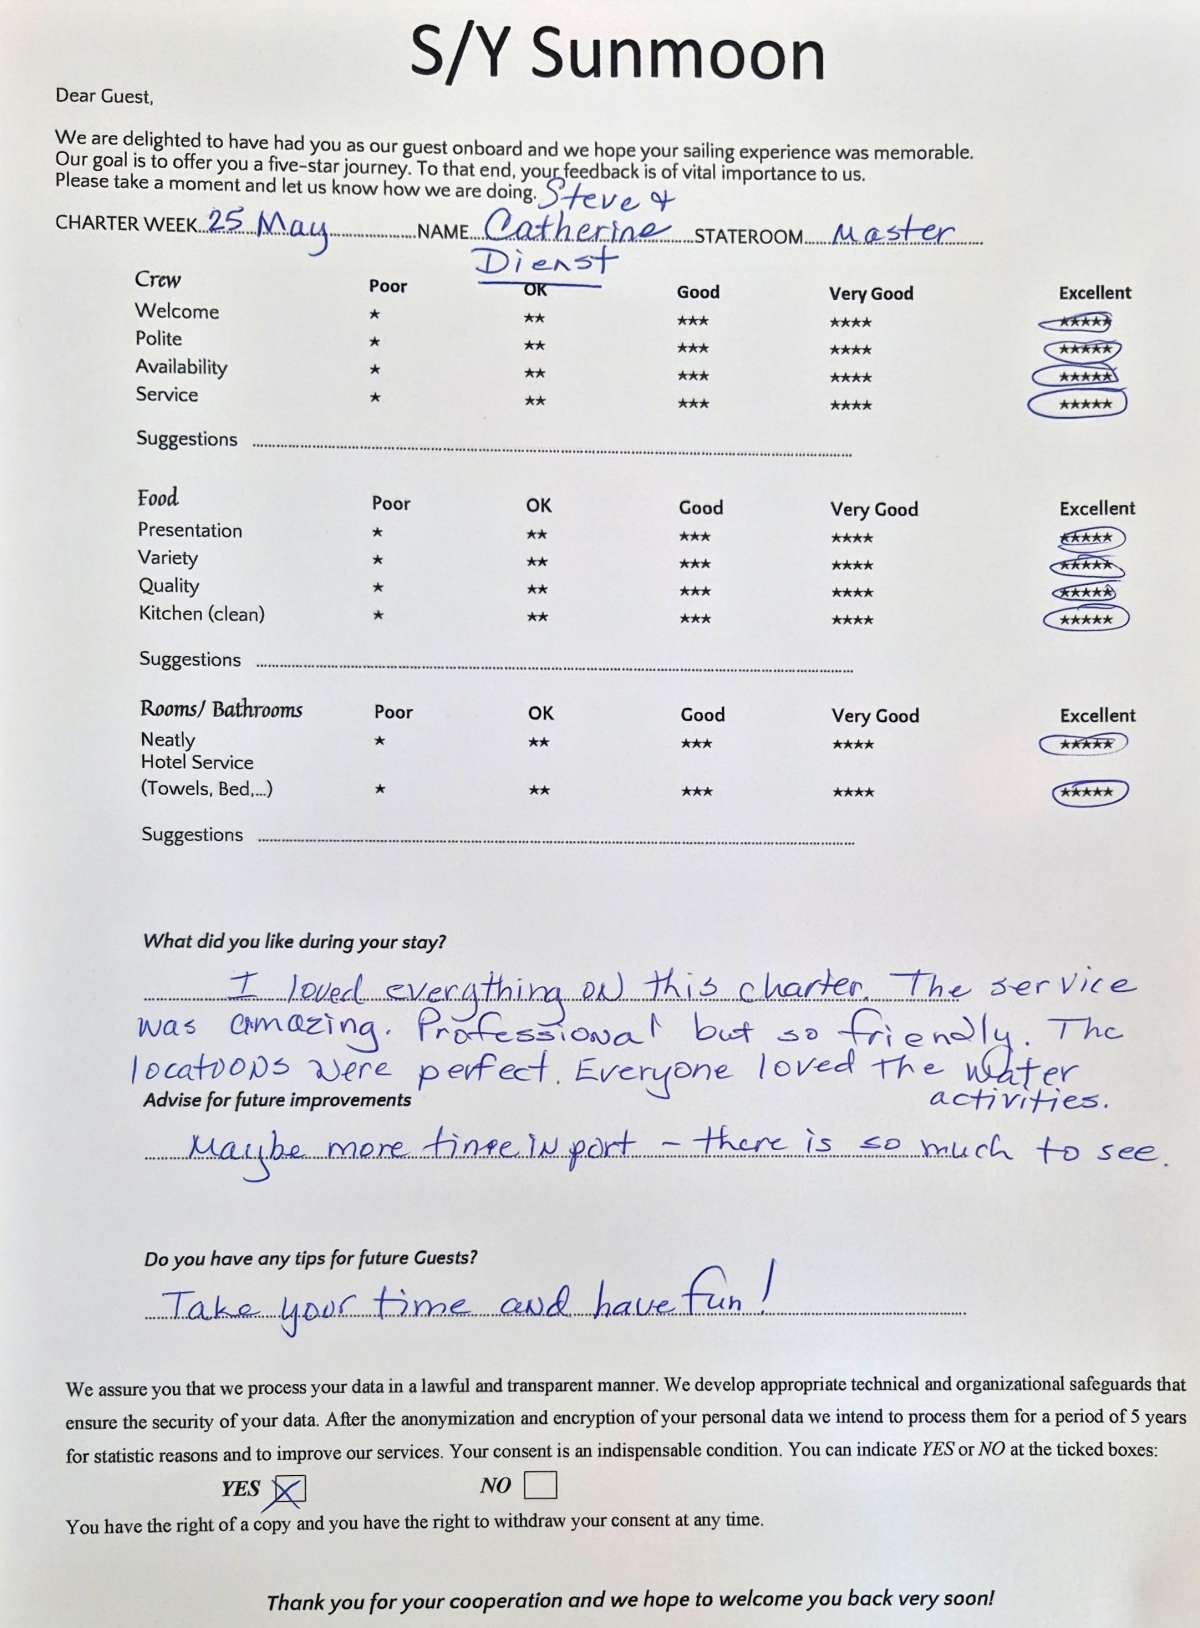 S/Y Sunmoon
Dear Guest,
We are delighted to have had you as our guest onboard and we hope your sailing experience was memorable.
Our goal is to offer you a five-star journey. To that end, your feedback is of vital importance to us.
Please take a moment and let us know how we are doing. Steve &
CHARTER WEEK 25 May NAME Catherine STATEROOM Master
Dienst
Crew Poor OK Good Very Good Excellent
Welcome ★ ★★ ★★★ ★★★★ ★★★★★
Polite ★ ★★ ★★★ ★★★★ ★★★★★
Availability ★ ★★ ★★★ ★★★★ ★★★★★
Service ★ ★★ ★★★ ★★★★ ★★★★★
Suggestions
Food Poor OK Good Very Good Excellent
Presentation ★ ★★ ★★★ ★★★★ ★★★★★
Variety ★ ★★ ★★★ ★★★★ ★★★★★
Quality ★ ★★ ★★★ ★★★★ ★★★★★
Kitchen (clean) ★ ★★ ★★★ ★★★★ ★★★★★
Suggestions
Rooms/ Bathrooms Poor OK Good Very Good Excellent
Neatly ★ ★★ ★★★ ★★★★ ★★★★★
Hotel Service
(Towels, Bed,...) ★ ★★ ★★★ ★★★★ ★★★★★
Suggestions
What did you like during your stay?
I loved everything on this charter. The service
was amazing. Professional but so friendly. The
locations were perfect. Everyone loved the water
activities.
Advise for future improvements
Maybe more time in port – there is so much to see.
Do you have any tips for future Guests?
Take your time and have fun!
We assure you that we process your data in a lawful and transparent manner. We develop appropriate technical and organizational safeguards that
ensure the security of your data. After the anonymization and encryption of your personal data we intend to process them for a period of 5 years
for statistic reasons and to improve our services. Your consent is an indispensable condition. You can indicate YES or NO at the ticked boxes:
YES ☒ NO ☐
You have the right of a copy and you have the right to withdraw your consent at any time.
Thank you for your cooperation and we hope to welcome you back very soon!